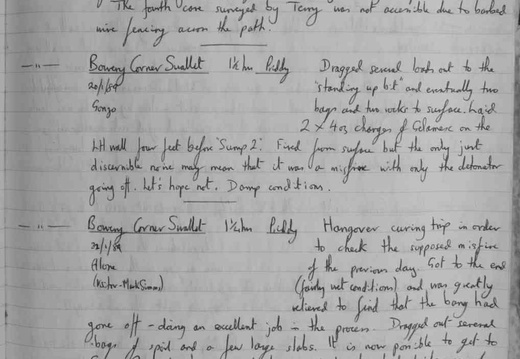 The fourth cave surveyed by Terry was not accessible due to barbed
wire fencing across the path.
—"— Bowery Corner Swallet 1½ hrs Priddy Dragged several loads out to the
20/1/89 'standing up bit' and eventually two
Gonzo bags and two rocks to surface. Laid
2 x 4oz charges of Gelamex on the
LH wall four feet before 'Sump 2'. Fired from surface but the only just
discernible noise may mean that it was a misfire with only the detonator
going off. Let's hope not. Damp conditions.
—"— Bowery Corner Swallet 1¼ hrs Priddy Hangover curing trip in order
/1/89 to check the supposed misfire
Alone of the previous day. Got to the end
(Visitor - Mark Simms) (fairly wet conditions) and was greatly
relieved to find that the bang had
gone off - doing an excellent job in the process. Dragged out several
bags of spoil and a few large slabs. It is now possible to get to